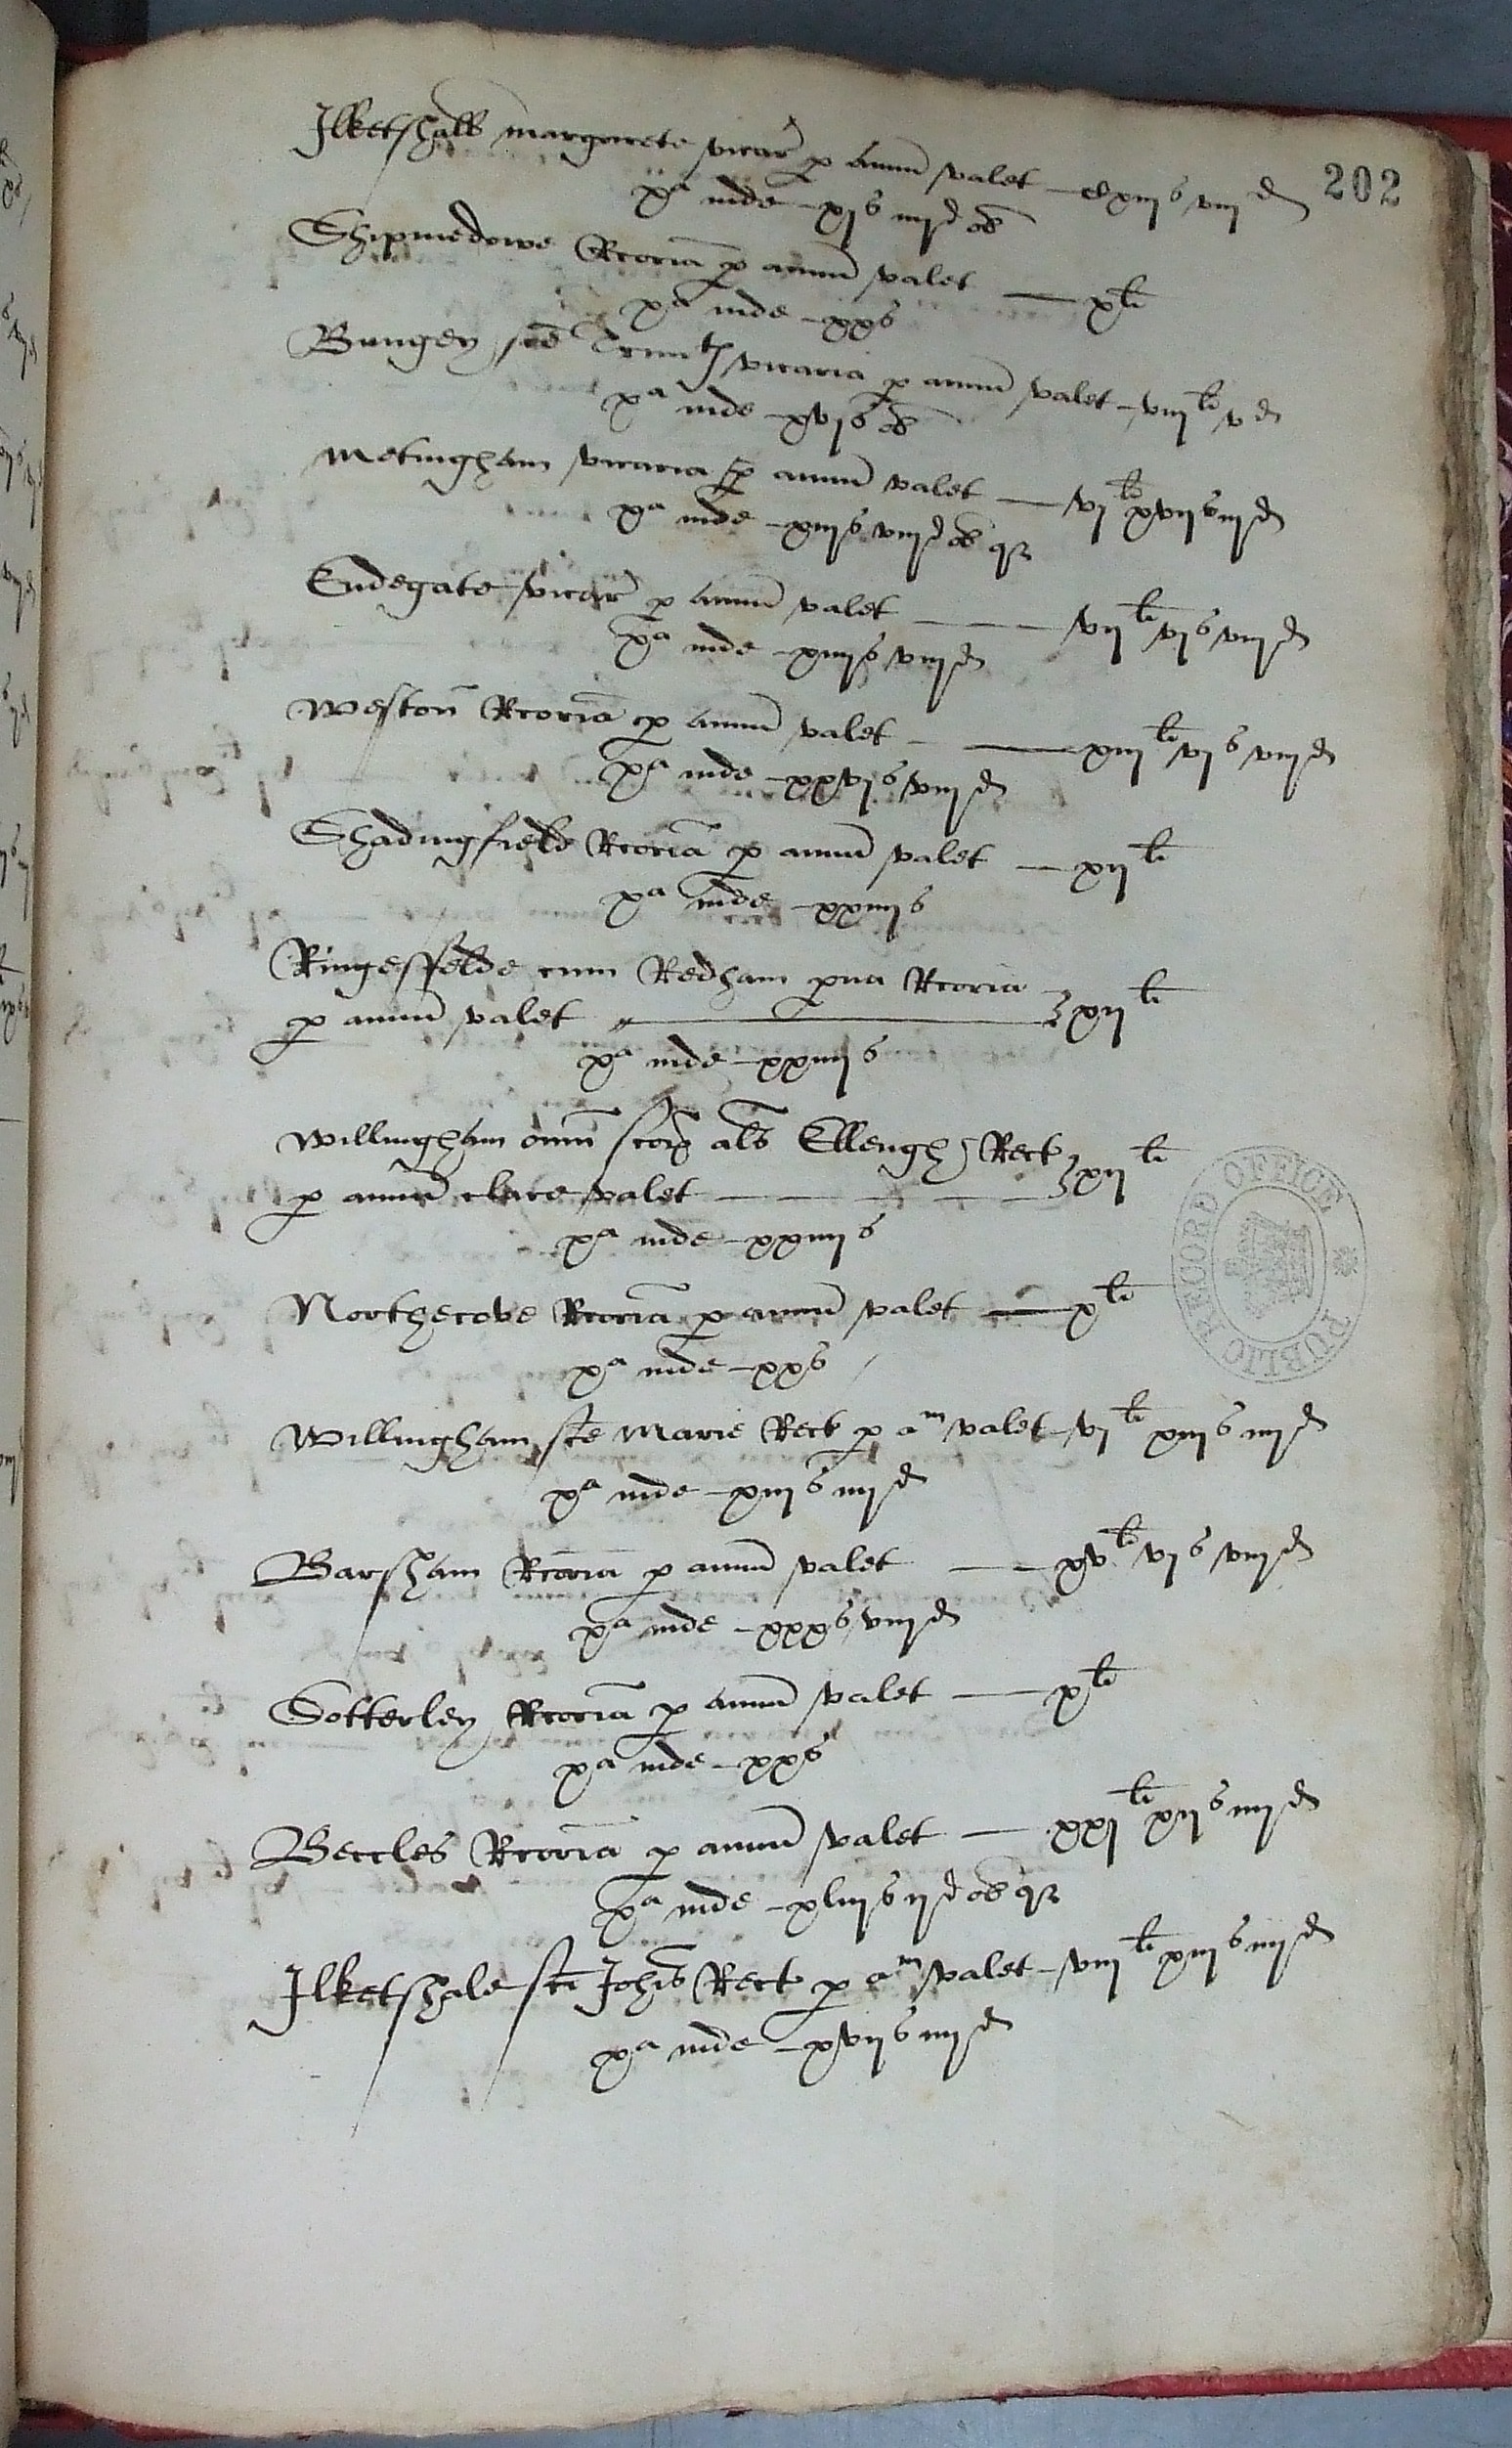 202
Ilketshall margarete vicar p annu valet — cxiijs viijd
xa inde — xjs iiijd ob
Shipmedowe Rcoria p annu valet — xli
xa inde — xxs
Bungey sce Trinit vicaria p annu valet — viijli vd
xa inde — xvjs ob
Metingham vicaria p annu valet — vjli xvijs iijd
xa inde — xiijs viijd ob qz
Endegate vicar p annu valet — vijli vjs viijd
xa inde — xiiijs viijd
Weston Rcoria p annu valet — xiijli vjs viijd
xa inde — xxvjs viijd
Shadingfield Rcoria p annu valet — xijli
xa inde — xxiiijs
Ringesffelde cum Redham pua Rcoria
p annu valet — xijli
xa inde — xxiiijs
Willingham omi scor als Ellengh Rect
p annu clare valet — xijli
xa inde — xxiiijs
Northecove Rcoria p annu valet — xli
xa inde — xxs
Willingham sce Marie Rect p am valet — vjli xiijs iiijd
xa inde — xiijs iiijd
Barsham Rcoria p annu valet — xvli vjs viijd
xa inde — xxxs viijd
Sotterley Rcoria p annu valet — xli
xa inde — xxs
Beccles Rcoria p annu valet — xxjli xijs iiijd
xa inde — xliijs ijd ob qz
Ilketshale sci Johis Rect p am valet — viijli xiijs iiijd
xa inde — xvijs iiijd
PUBLIC RECORD OFFICE